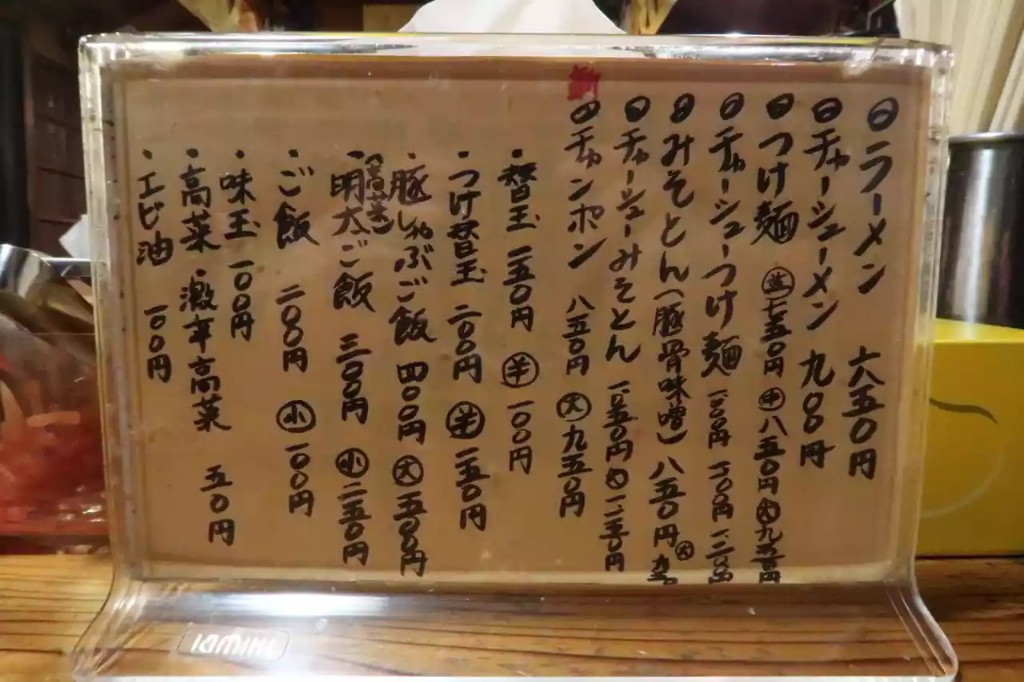 ラーメン 六五〇円
チャーシューメン 九〇〇円
つけ麺 並 七五〇円 中 八五〇円 大 九五〇円
チャーシューつけ麺 一〇〇〇円 一一〇〇円 一二〇〇円
みそとん(豚骨味噌) 八五〇円 大
チャーシューみそとん 一〇五〇円 大 一一五〇円
新 チャンポン 八五〇円 大 九五〇円
・替玉 一五〇円 半 一〇〇円
・つけ替玉 二〇〇円 半 一五〇円
・豚しゃぶご飯 四〇〇円 大 五〇〇円
(高菜)
・明太ご飯 三〇〇円 小 二五〇円
・ご飯 二〇〇円 小 一〇〇円
・味玉 一〇〇円
・高菜・激辛高菜 五〇円
・エビ油 一〇〇円